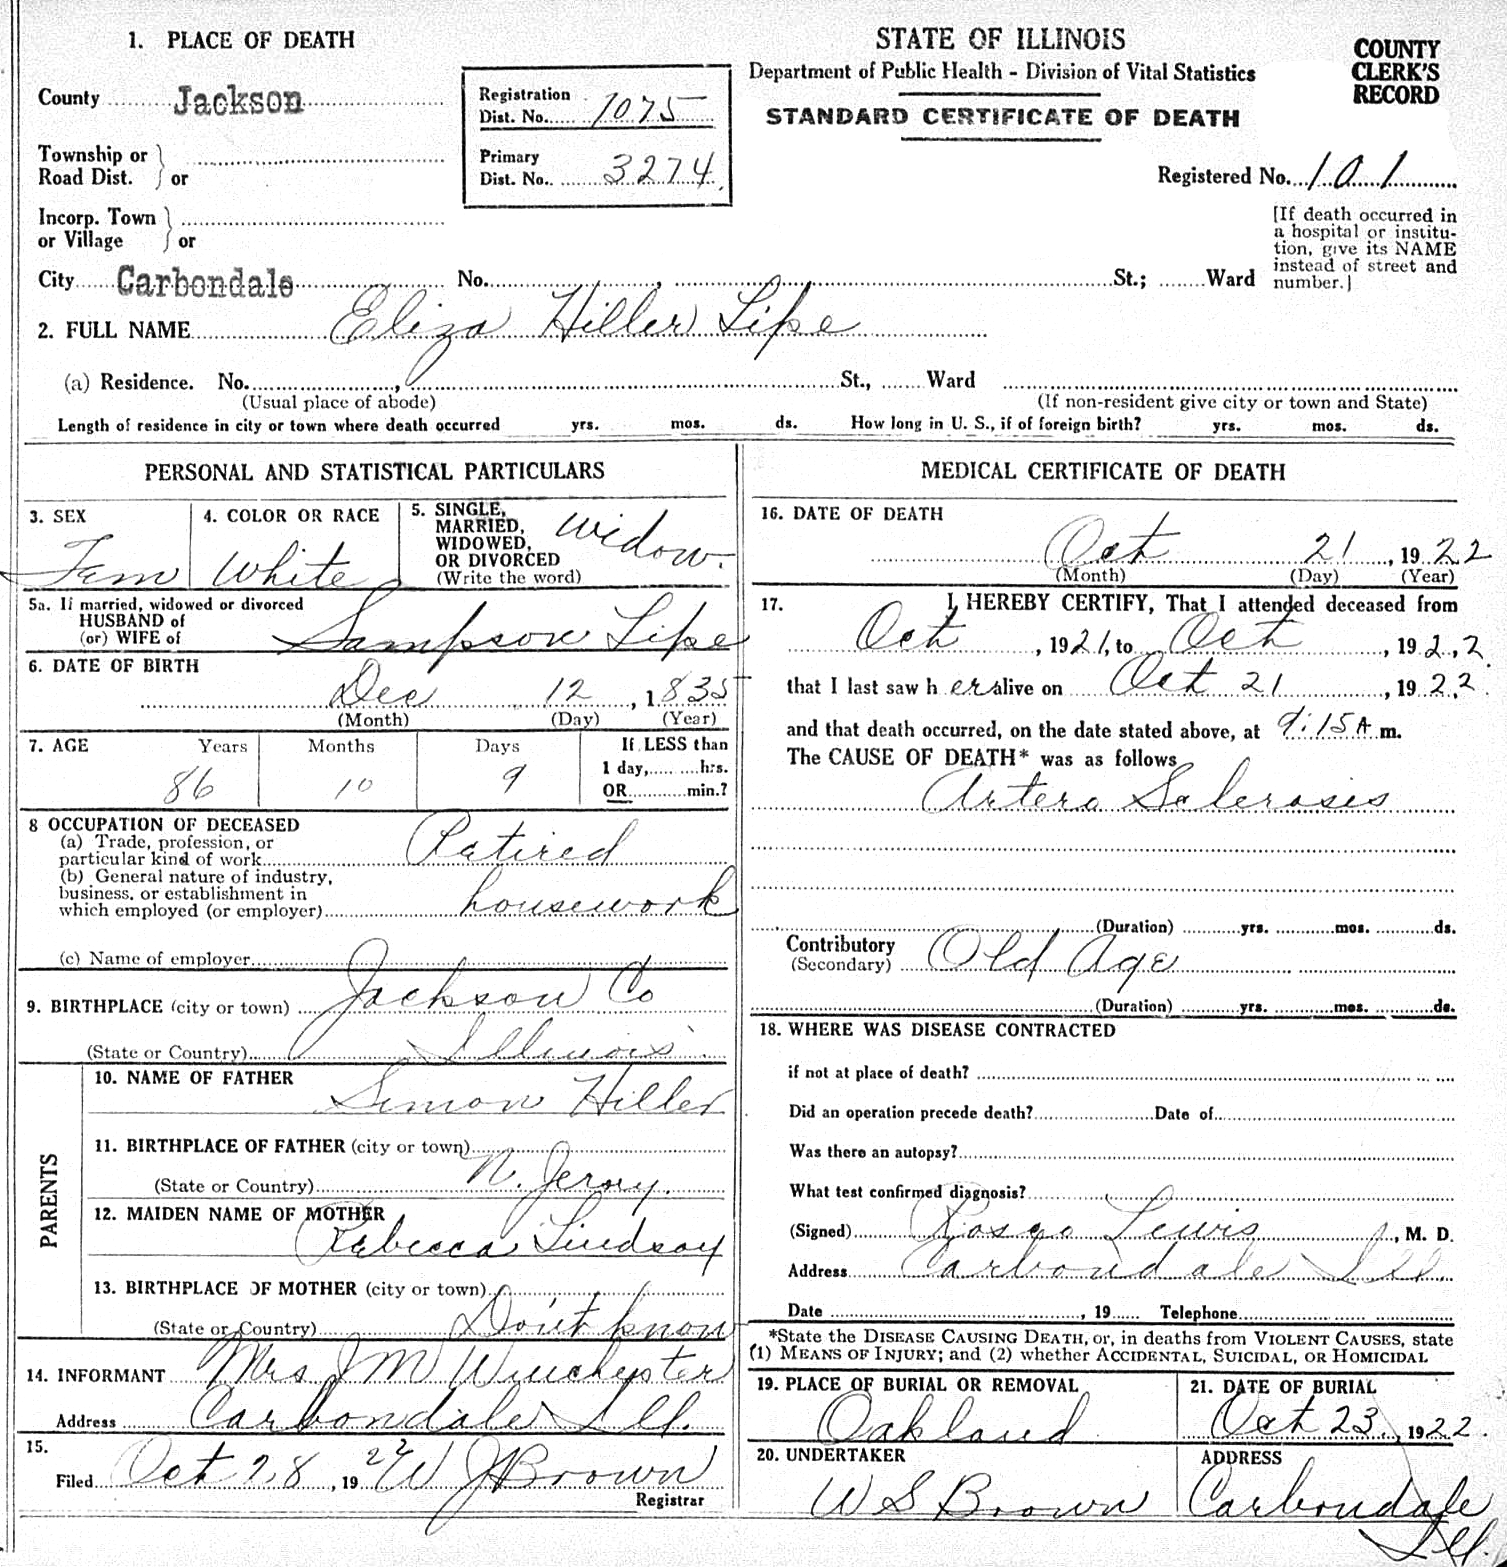 1. PLACE OF DEATH
STATE OF ILLINOIS
Department of Public Health - Division of Vital Statistics
STANDARD CERTIFICATE OF DEATH
COUNTY
CLERK'S
RECORD
County Jackson
Registration
Dist. No. 1075
Primary
Dist. No. 3274
Township or
Road Dist. or
Registered No. 101
Incorp. Town
or Village or
[If death occurred in
a hospital or institu-
tion, give its NAME
instead of street and
number.]
City Carbondale No. , St.; Ward
2. FULL NAME Eliza Hiller Lipe
(a) Residence. No. , St., Ward
(Usual place of abode) (If non-resident give city or town and State)
Length of residence in city or town where death occurred yrs. mos. ds. How long in U. S., if of foreign birth? yrs. mos. ds.
PERSONAL AND STATISTICAL PARTICULARS
3. SEX
Fem
4. COLOR OR RACE
White
5. SINGLE,
MARRIED,
WIDOWED,
OR DIVORCED
(Write the word)
Widow.
5a. If married, widowed or divorced
HUSBAND of
(or) WIFE of Sampson Lipe
6. DATE OF BIRTH
Dec 12, 1835
(Month) (Day) (Year)
7. AGE Years Months Days If LESS than
86 10 9 1 day, hrs.
OR min.?
8 OCCUPATION OF DECEASED
(a) Trade, profession, or
particular kind of work Retired
(b) General nature of industry,
business, or establishment in
which employed (or employer) housework
(c) Name of employer
9. BIRTHPLACE (city or town) Jackson Co
(State or Country) Illinois
PARENTS
10. NAME OF FATHER
Simon Hiller
11. BIRTHPLACE OF FATHER (city or town)
(State or Country) N. Jersy.
12. MAIDEN NAME OF MOTHER
Rebecca Lindsay
13. BIRTHPLACE OF MOTHER (city or town)
(State or Country) Do'nt know
14. INFORMANT Mrs J M Winchester
Address Carbondale Ill.
15.
Filed Oct 28, 1922 W J Brown
Registrar
MEDICAL CERTIFICATE OF DEATH
16. DATE OF DEATH
Oct 21, 1922
(Month) (Day) (Year)
17. I HEREBY CERTIFY, That I attended deceased from
Oct , 1921, to Oct , 1922.
that I last saw h er alive on Oct 21 , 1922.
and that death occurred, on the date stated above, at 9:15 A m.
The CAUSE OF DEATH* was as follows
Artero Sclerosis
(Duration) yrs. mos. ds.
Contributory
(Secondary) Old Age
(Duration) yrs. mos. ds.
18. WHERE WAS DISEASE CONTRACTED
if not at place of death?
Did an operation precede death? Date of
Was there an autopsy?
What test confirmed diagnosis?
(Signed) Rosco Lewis , M. D.
Address Carbondale Ill.
Date , 19 Telephone
*State the DISEASE CAUSING DEATH, or, in deaths from VIOLENT CAUSES, state
(1) MEANS OF INJURY; and (2) whether ACCIDENTAL, SUICIDAL, OR HOMICIDAL
19. PLACE OF BURIAL OR REMOVAL
Oakland
21. DATE OF BURIAL
Oct 23, 1922.
20. UNDERTAKER
W S Brown
ADDRESS
Carbondale
Ill.